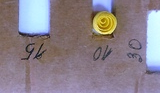 15 10 30